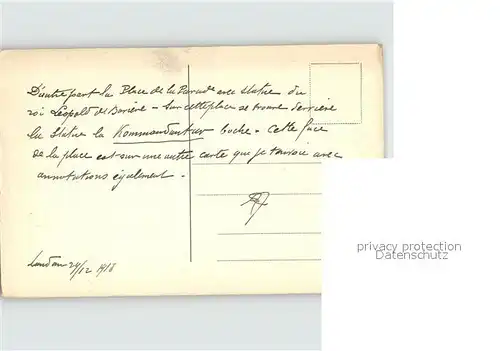 D'autre part la Place de la Parade avec statue du
roi Léopold de Bavière - Sur cette place se trouve derrière
la statue la Kommandantur boche. Cette face
de la place est sur une autre carte que je t'envoie avec
annotations également.
Landau 24/12 1918
privacy protection